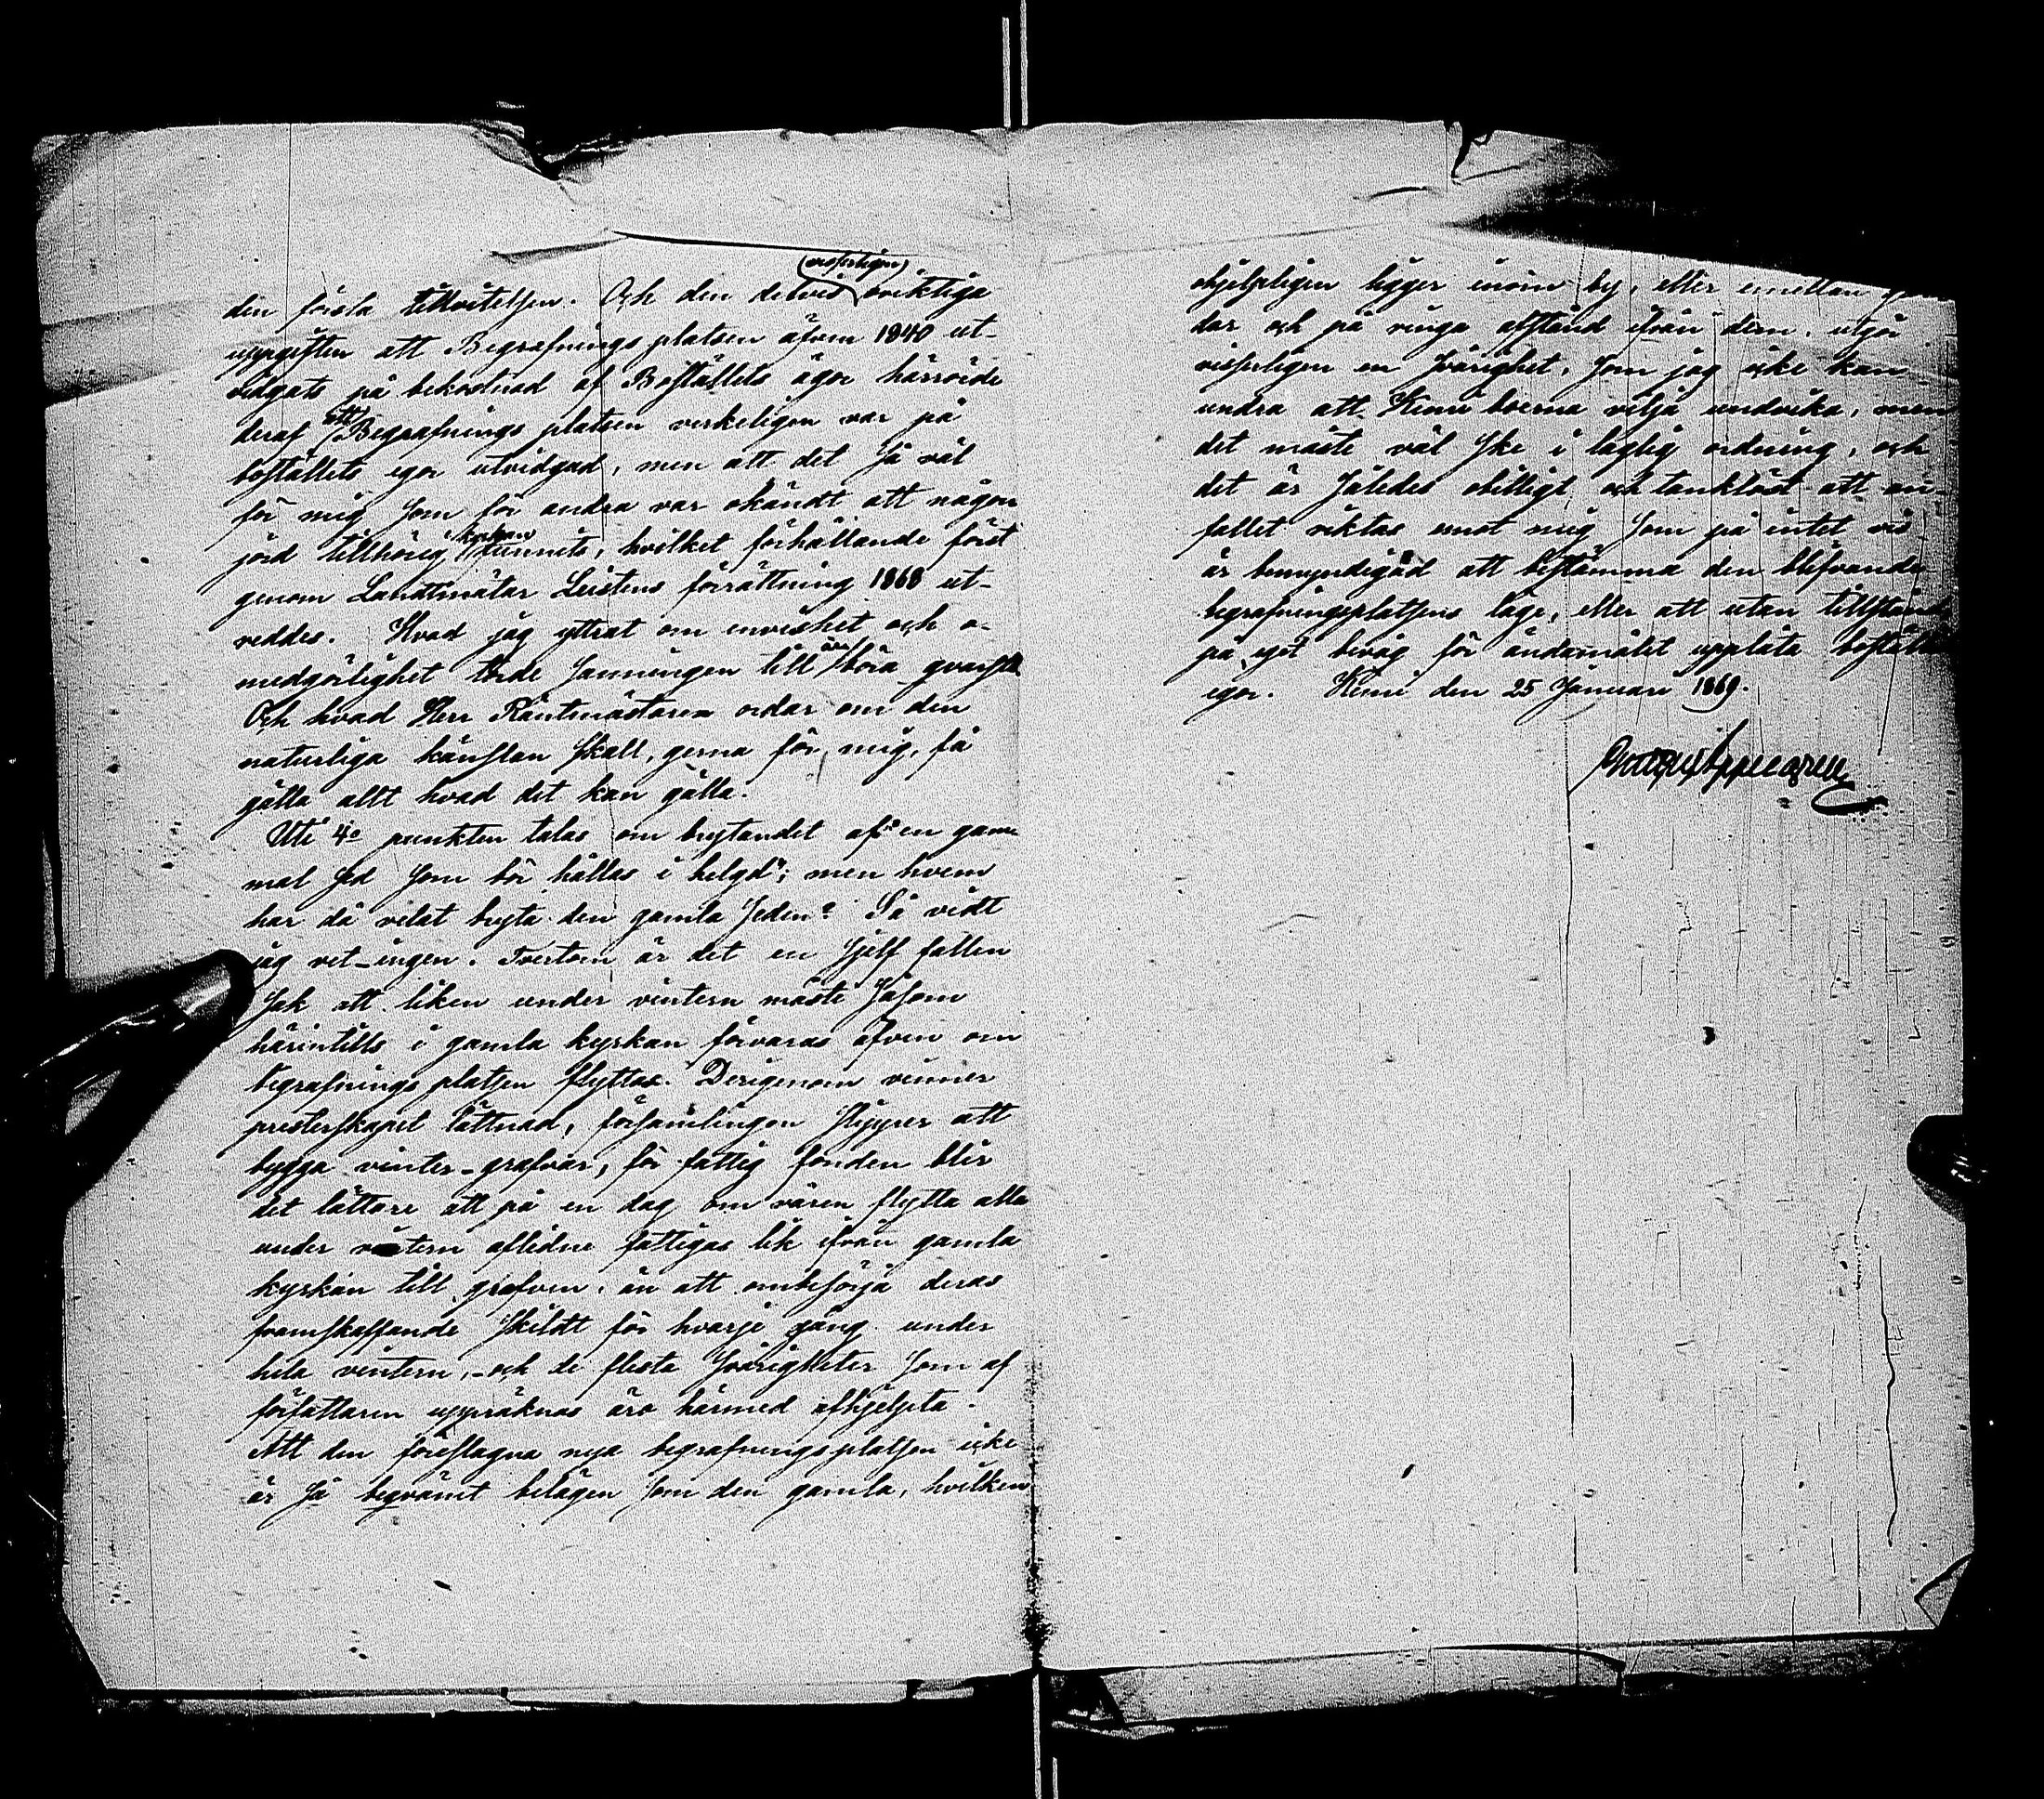 den första tillvitelsen. Och den delvis (visserligen) oriktiga
uppgiften att Begrafnings platsen äfven 1840 ut-
vidgats på bekostnad af Boställets ägor härrörde
deraf att Begrafnings platsen verkeligen var på
boställets egor utvidgad, men att det så väl
för mig som för andra var okändt att någon
jord tillhörig kyrkan funnits, hvilket förhållande först
genom Landtmätar Leistens förrättning 1868 ut-
reddes. Hvad jag yttrat om envishet och o-
medgörlighet torde sanningen till ära böra qvarstå
Och hvad Herr Räntmästaren ordar om den
naturliga känslan skall, gerna för mig, få
gälla allt hvad det kan gälla.
Uti 4o punkten talas om brytandet af "en gam-
mal sed som bör hållas i helgd"; men hvem
har då velat bryta den gamla seden? Så vidt
jag vet - ingen. Tvertom är det en sjelf fallen
sak att liken under vintern måste såsom
härintills i gamla kyrkan förvaras äfven om
begrafnings platsen flyttas. Derigenom vinner
presterskapet lättnad, församlingen slipper att
bygga vinter-grafvar, för fattig fonden blir
det lättare att på en dag om våren flytta alla
under vintern aflidne fattigas lik ifrån gamla
kyrkan till grafven, än att ombesörja deras
framskaffande skildt för hvarje gång under
hela vintern, - och de flesta svårigheter som af
författaren uppräknas äro härmed afhjelpta.
Att den föreslagna nya begrafningsplatsen icke
är så beqvämt belägen som den gamla, hvilken
ohjelpligen ligger inom by, eller emellan
dar och på ringa afstånd ifrån dem, utgör
visserligen en svårighet, som jag icke kan
undra att Kemi boerna vilja undvika, men
det måste väl ske i laglig ordning, och
det är således obilligt och tanklöst att an-
fallet riktas emot mig som på intet vis
är bemyndigad att bestämma den blifvande
begrafningsplatsens läge, eller att utan tillstånd
på eget bevåg för ändamålet upplåta boställets
egor. Kemi den 25 Januari 1869.